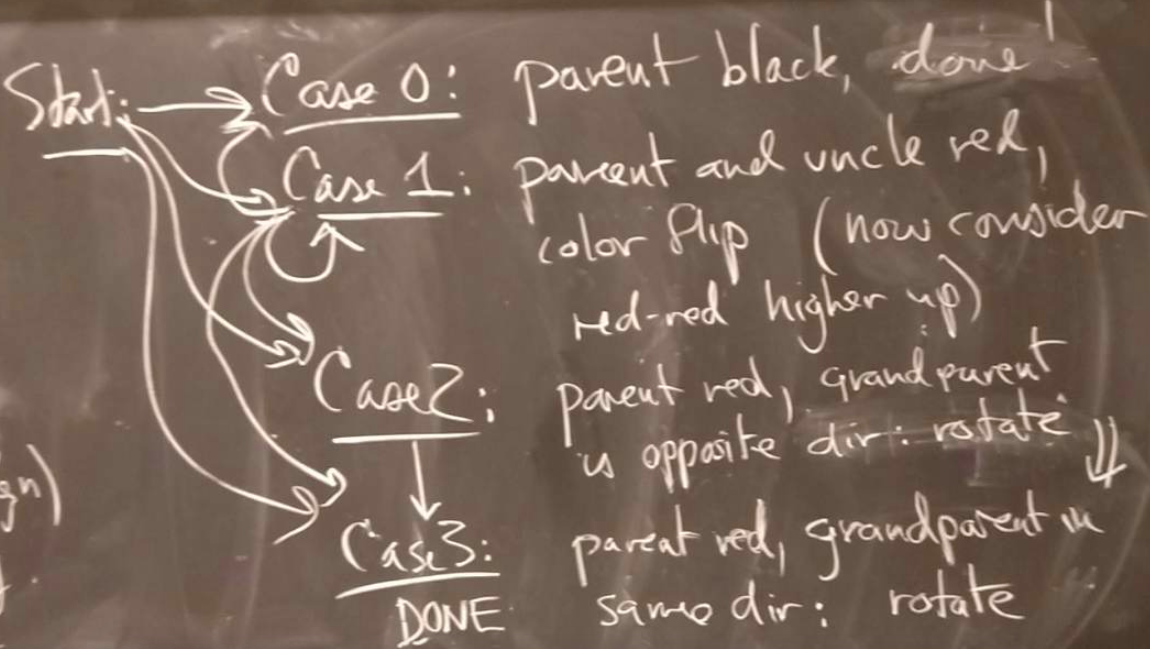 Start: Case 0: parent black, done!
Case 1: parent and uncle red,
color flip (now consider
red-red higher up)
Case 2: parent red, grandparent
is opposite dir: rotate
Case 3: parent red, grandparent in
DONE same dir: rotate